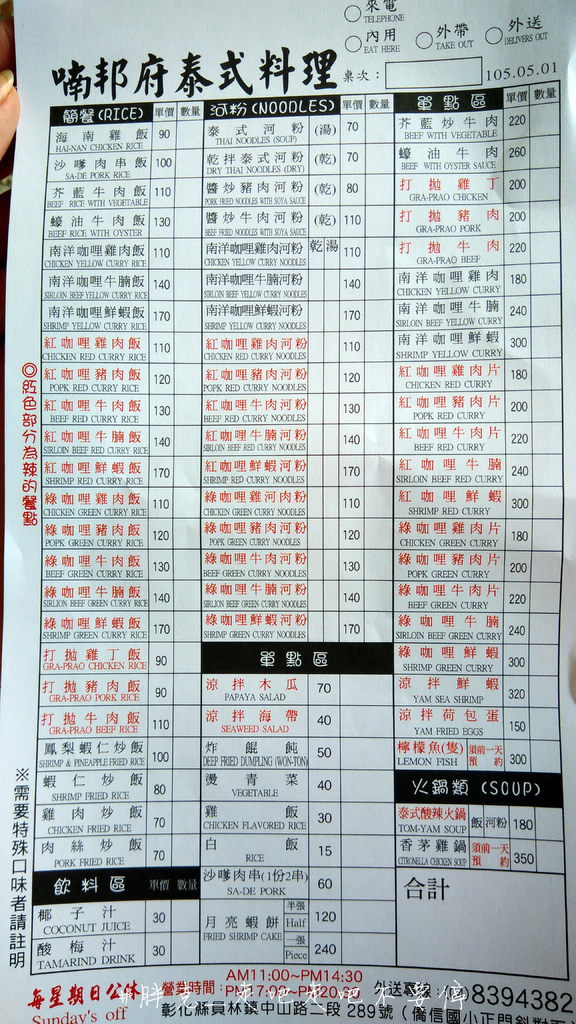 來電
TELEPHONE
內用
EAT HERE
外帶
TAKE OUT
外送
DELIVERS OUT
喃邦府泰式料理
桌次：
105.05.01
簡餐(RICE) 單價 數量
海南雞飯 90
HAI-NAN CHICKEN RICE
沙嗲肉串飯 100
SA-DE PORK RICE
芥藍牛肉飯 110
BEEF RICE WITH VEGETABLE
蠔油牛肉飯 130
BEEF RICE WITH OYSTER
南洋咖哩雞肉飯 110
CHICKEN YELLOW CURRY RICE
南洋咖哩牛腩飯 140
SIRLOIN BEEF YELLOW CURRY RICE
南洋咖哩鮮蝦飯 170
SHRIMP YELLOW CURRY RICE
紅咖哩雞肉飯 110
CHICKEN RED CURRY RICE
紅咖哩豬肉飯 120
POPK RED CURRY RICE
紅咖哩牛肉飯 130
BEEF RED CURRY RICE
紅咖哩牛腩飯 140
SIRLOIN BEEF RED CURRY RICE
紅咖哩鮮蝦飯 170
SHRIMP RED CURRY RICE
綠咖哩雞肉飯 110
CHICKEN GREEN CURRY RICE
綠咖哩豬肉飯 120
POPK GREEN CURRY RICE
綠咖哩牛肉飯 130
BEEF GREEN CURRY RICE
綠咖哩牛腩飯 140
SIRLION BEEF GREEN CURRY RICE
綠咖哩鮮蝦飯 170
SHRIMP GREEN CURRY RICE
打拋雞丁飯 90
GRA-PRAO CHICKEN RICE
打拋豬肉飯 90
GRA-PRAO PORK RICE
打拋牛肉飯 110
GRA-PRAO BEEF RICE
鳳梨蝦仁炒飯 100
SHRIMP & PINEAPPLE FRIED RICE
蝦仁炒飯 80
SHRIMP FRIED RICE
雞肉炒飯 70
CHICKEN FRIED RICE
肉絲炒飯 70
PORK FRIED RICE
飲料區 單價 數量
椰子汁 30
COCONUT JUICE
酸梅汁 30
TAMARIND DRINK
河粉(NOODLES) 單價 數量
泰式河粉 (湯) 70
THAI NOODLES (SOUP)
乾拌泰式河粉 (乾) 70
DRY THAI NOODLES (DRY)
醬炒豬肉河粉 (乾) 80
PORK FRIED NOODLES WITH SOYA SAUCE
醬炒牛肉河粉 (乾) 110
BEEF FRIED NOODLES WITH SOYA SAUCE
南洋咖哩雞肉河粉 乾 湯 110
CHICKEN YELLOW CURRY NOODLES
南洋咖哩牛腩河粉 140
SIRLOIN BEEF YELLOW CURRY NOODLES
南洋咖哩鮮蝦河粉 170
SHRIMP YELLOW CURRY NOODLES
紅咖哩雞肉河粉 110
CHICKEN RED CURRY NOODLES
紅咖哩豬肉河粉 120
POPK RED CURRY NOODLES
紅咖哩牛肉河粉 130
BEEF RED CURRY NOODLES
紅咖哩牛腩河粉 140
SIRLOIN BEEF RED CURRY NOODLES
紅咖哩鮮蝦河粉 170
SHRIMP RED CURRY NOODLES
綠咖哩雞河肉粉 110
CHICKEN GREEN CURRY NOODLES
綠咖哩豬肉河粉 120
POPK GREEN CURRY NOODLES
綠咖哩牛肉河粉 130
BEEF GREEN CURRY NOODLES
綠咖哩牛腩河粉 140
SIRLION BEEF GREEN CURRY NOODLES
綠咖哩鮮蝦河粉 170
SHRIMP GREEN CURRY NOODLES
單點區
涼拌木瓜 70
PAPAYA SALAD
涼拌海帶 40
SEAWEED SALAD
炸餛飩 50
DEEP FRIED DUMPLING (WON-TON)
燙青菜 40
VEGETABLE
雞飯 30
CHICKEN FLAVORED RICE
白飯 15
RICE
沙嗲肉串(1份2串) 60
SA-DE PORK
月亮蝦餅 半張 Half 120
FRIED SHRIMP CAKE 一張 Piece 240
單點區 單價 數量
芥藍炒牛肉 220
BEEF WITH VEGETABLE
蠔油牛肉 260
BEEF WITH OYSTER SAUCE
打拋雞丁 200
GRA-PRAO CHICKEN
打拋豬肉 200
GRA-PRAO PORK
打拋牛肉 220
GRA-PRAO BEEF
南洋咖哩雞肉 180
CHICKEN YELLOW CURRY
南洋咖哩牛腩 240
SIRLOIN BEEF YELLOW CURRY
南洋咖哩鮮蝦 300
SHRIMP YELLOW CURRY
紅咖哩雞肉片 180
CHICKEN RED CURRY
紅咖哩豬肉片 200
POPK RED CURRY
紅咖哩牛肉片 220
BEEF RED CURRY
紅咖哩牛腩 240
SIRLOIN BEEF RED CURRY
紅咖哩鮮蝦 300
SHRIMP RED CURRY
綠咖哩雞肉片 180
CHICKEN GREEN CURRY
綠咖哩豬肉片 200
POPK GREEN CURRY
綠咖哩牛肉片 220
BEEF GREEN CURRY
綠咖哩牛腩 240
SIRLOIN BEEF GREEN CURRY
綠咖哩鮮蝦 300
SHRIMP GREEN CURRY
涼拌鮮蝦 320
YAM SEA SHRIMP
涼拌荷包蛋 150
YAM FRIED EGGS
檸檬魚(隻) 須前一天預約 300
LEMON FISH
火鍋類(SOUP)
泰式酸辣火鍋 飯 河粉 180
TOM-YAM SOUP
香茅雞鍋 須前一天預約 350
CITRONELLA CHICKEN SOUP
合計
◎紅色部分為辣的餐點
※需要特殊口味者請註明
每星期日公休
Sunday's off
營業時間：AM11:00~PM14:30
PM17:00~PM20:30
外送專線：
8394382
彰化縣員林鎮中山路二段289號（僑信國小正門斜對面
來吧來吧不要停